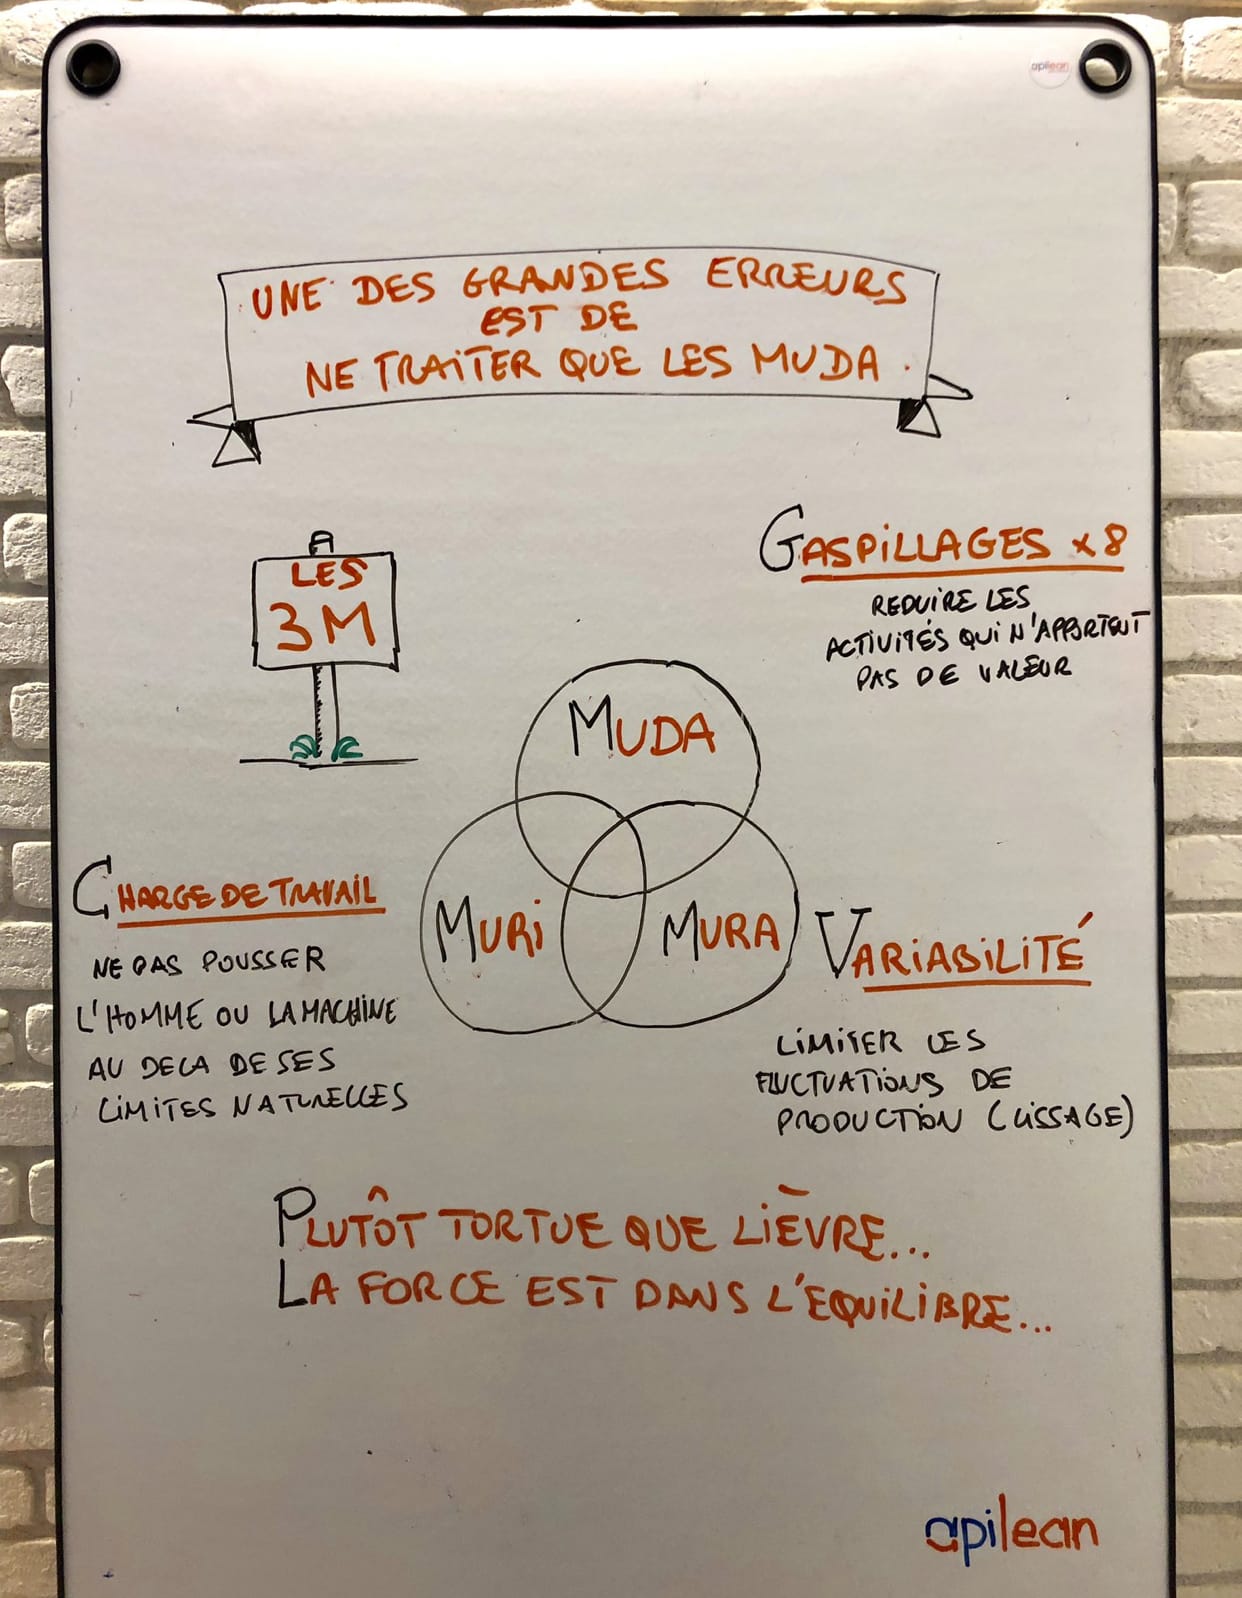 apilean
UNE DES GRANDES ERREURS
EST DE
NE TRAITER QUE LES MUDA.
LES
3M
GASPILLAGES x8
REDUIRE LES
ACTIVITÉS QUI N'APPORTENT
PAS DE VALEUR
MUDA
MURI
MURA
CHARGE DE TRAVAIL
NE PAS POUSSER
L'HOMME OU LA MACHINE
AU DELA DE SES
LIMITES NATURELLES
VARIABILITÉ
LIMITER LES
FLUCTUATIONS DE
PRODUCTION (LISSAGE)
PLUTÔT TORTUE QUE LIÈVRE...
LA FORCE EST DANS L'EQUILIBRE...
apilean